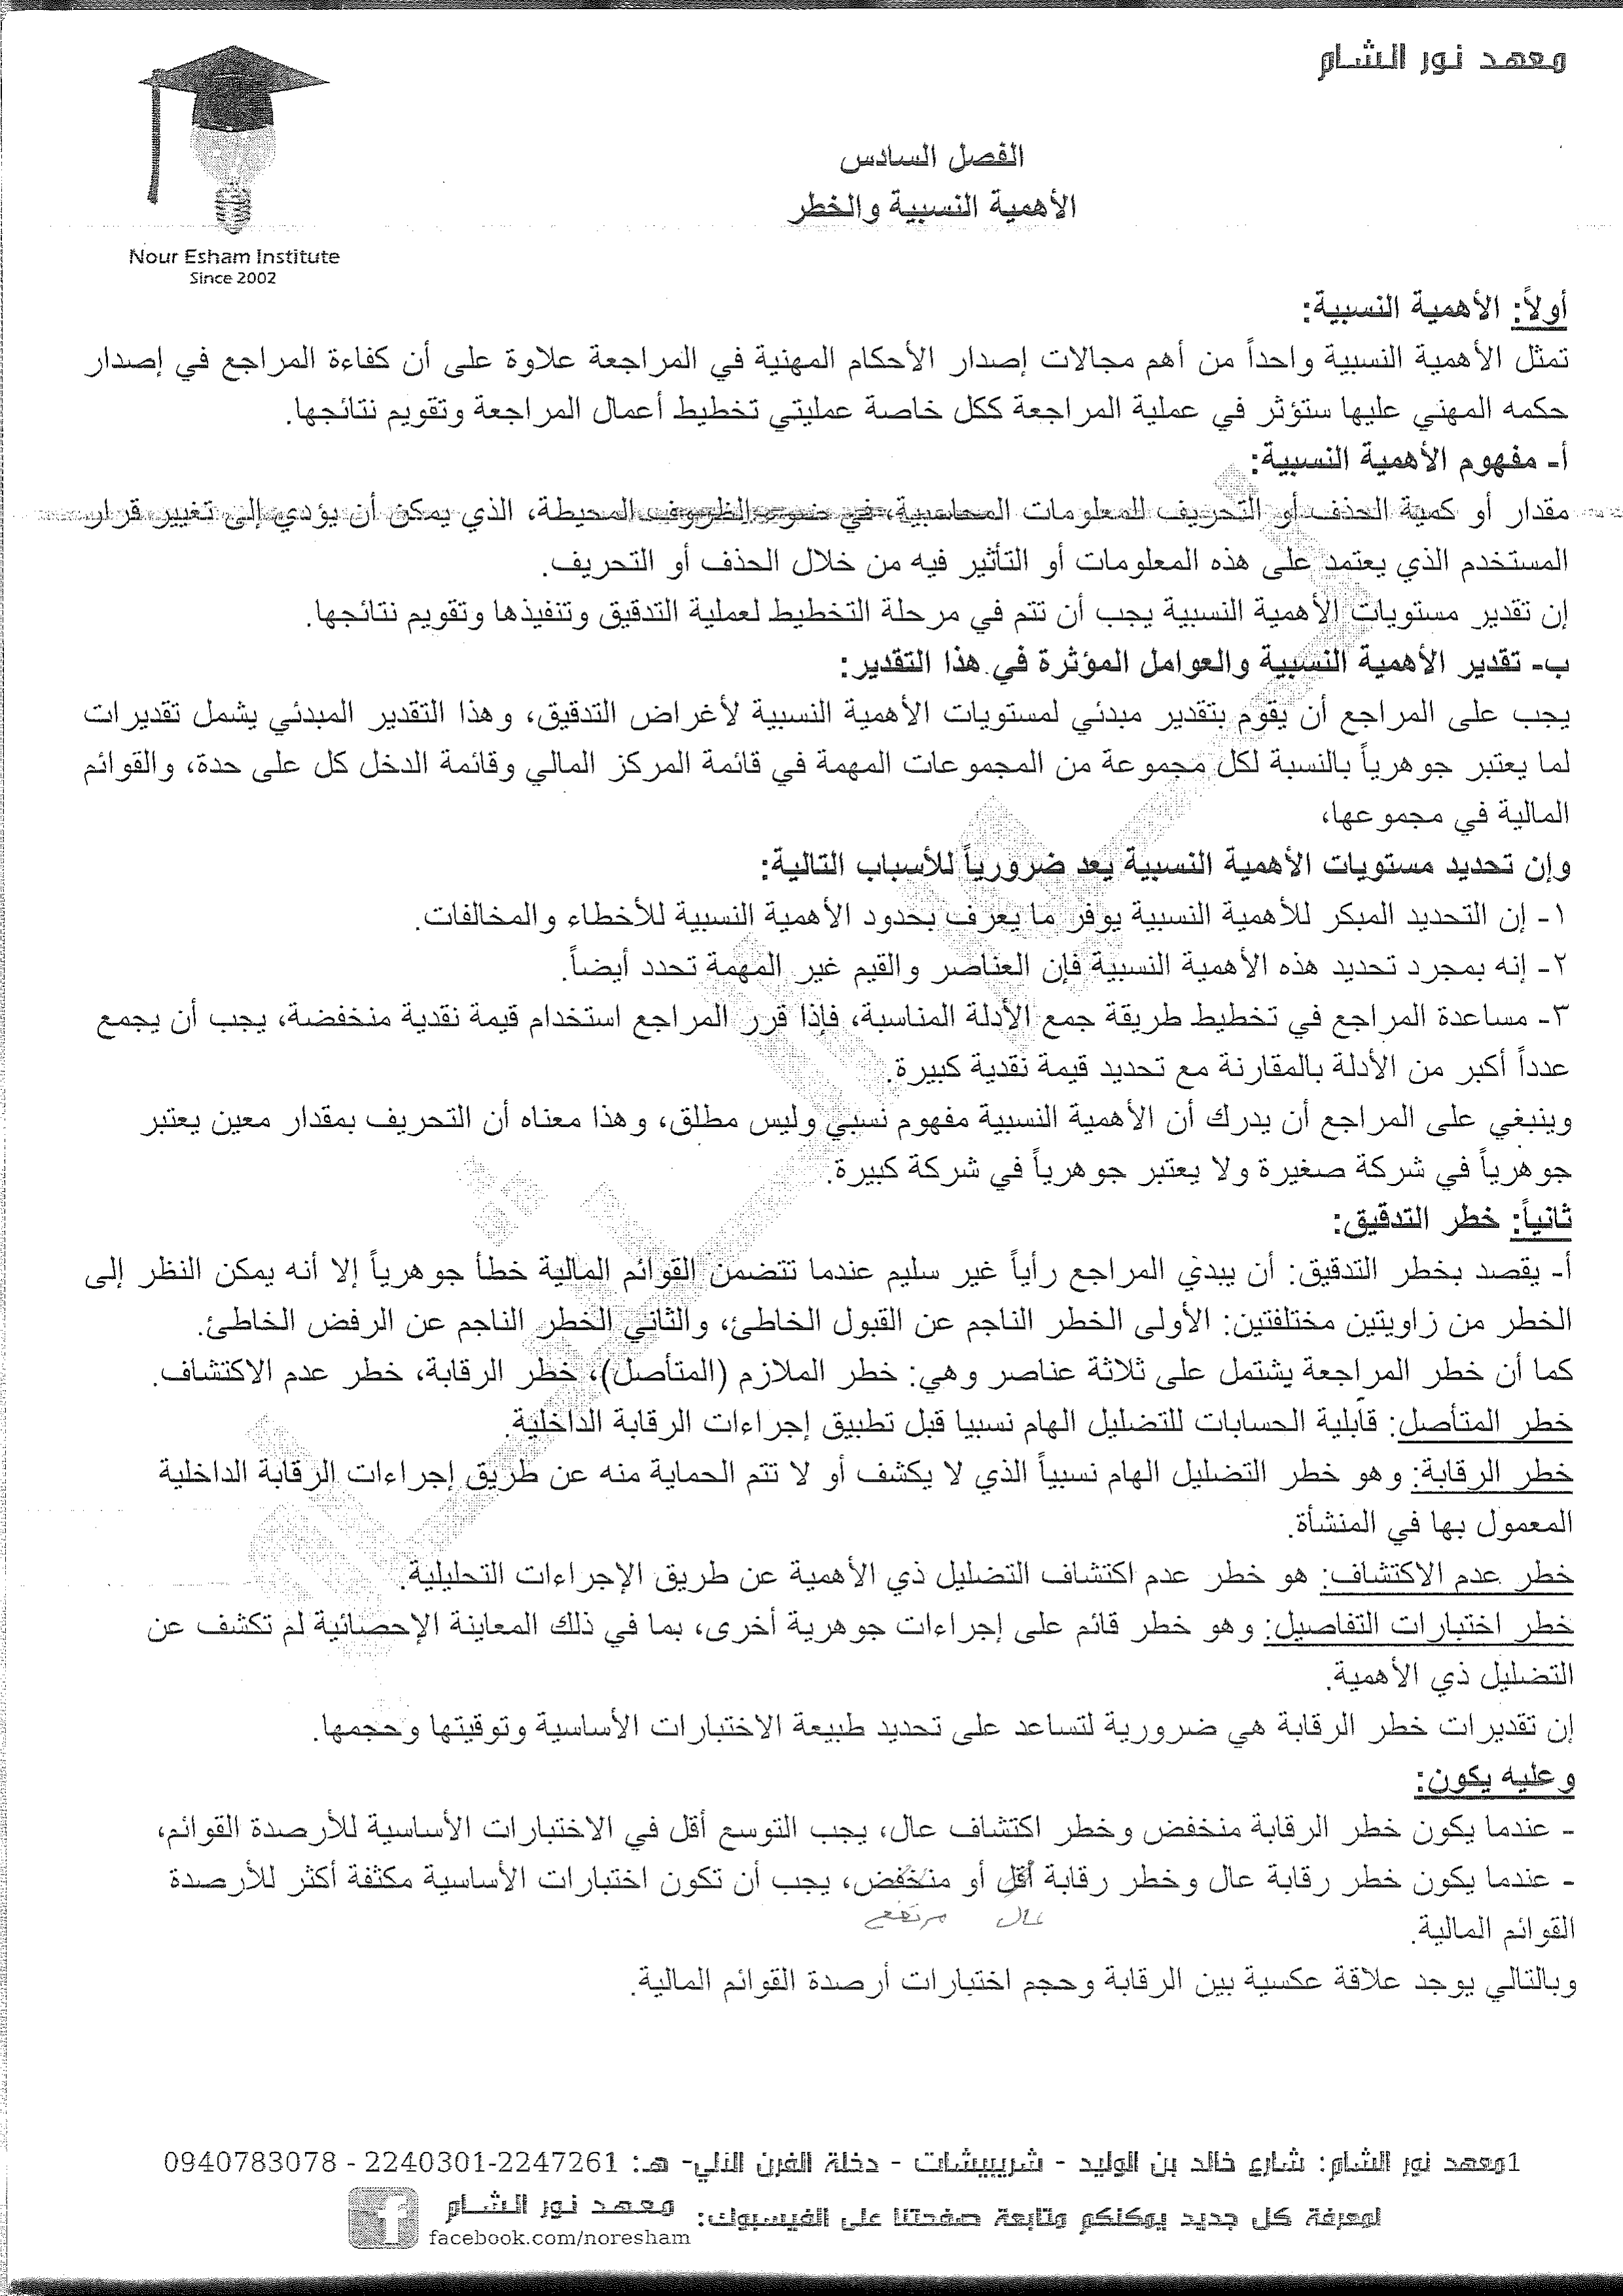 معهد نور الشام
Nour Esham Institute
Since 2002
الفصل السادس
الأهمية النسبية والخطر
أولاً: الأهمية النسبية:
تمثل الأهمية النسبية واحداً من أهم مجالات إصدار الأحكام المهنية في المراجعة علاوة على أن كفاءة المراجع في إصدار
حكمه المهني عليها ستؤثر في عملية المراجعة ككل خاصة عمليتي تخطيط أعمال المراجعة وتقويم نتائجها.
أ- مفهوم الأهمية النسبية:
مقدار أو كمية الحذف أو التحريف للمعلومات المحاسبية، في ضوء الظروف المحيطة، الذي يمكن أن يؤدي إلى تغيير قرار
المستخدم الذي يعتمد على هذه المعلومات أو التأثير فيه من خلال الحذف أو التحريف.
إن تقدير مستويات الأهمية النسبية يجب أن تتم في مرحلة التخطيط لعملية التدقيق وتنفيذها وتقويم نتائجها.
ب- تقدير الأهمية النسبية والعوامل المؤثرة في هذا التقدير:
يجب على المراجع أن يقوم بتقدير مبدئي لمستويات الأهمية النسبية لأغراض التدقيق، وهذا التقدير المبدئي يشمل تقديرات
لما يعتبر جوهرياً بالنسبة لكل مجموعة من المجموعات المهمة في قائمة المركز المالي وقائمة الدخل كل على حدة، والقوائم
المالية في مجموعها،
وإن تحديد مستويات الأهمية النسبية يعد ضرورياً للأسباب التالية:
١- إن التحديد المبكر للأهمية النسبية يوفر ما يعرف بحدود الأهمية النسبية للأخطاء والمخالفات.
٢- إنه بمجرد تحديد هذه الأهمية النسبية فإن العناصر والقيم غير المهمة تحدد أيضاً.
٣- مساعدة المراجع في تخطيط طريقة جمع الأدلة المناسبة، فإذا قرر المراجع استخدام قيمة نقدية منخفضة، يجب أن يجمع
عدداً أكبر من الأدلة بالمقارنة مع تحديد قيمة نقدية كبيرة.
وينبغي على المراجع أن يدرك أن الأهمية النسبية مفهوم نسبي وليس مطلق، وهذا معناه أن التحريف بمقدار معين يعتبر
جوهرياً في شركة صغيرة ولا يعتبر جوهرياً في شركة كبيرة.
ثانياً: خطر التدقيق:
أ- يقصد بخطر التدقيق: أن يبدي المراجع رأياً غير سليم عندما تتضمن القوائم المالية خطأ جوهرياً إلا أنه يمكن النظر إلى
الخطر من زاويتين مختلفتين: الأولى الخطر الناجم عن القبول الخاطئ، والثاني الخطر الناجم عن الرفض الخاطئ.
كما أن خطر المراجعة يشتمل على ثلاثة عناصر وهي: خطر الملازم (المتأصل)، خطر الرقابة، خطر عدم الاكتشاف.
خطر المتأصل: قابلية الحسابات للتضليل الهام نسبيا قبل تطبيق إجراءات الرقابة الداخلية.
خطر الرقابة: وهو خطر التضليل الهام نسبياً الذي لا يكشف أو لا تتم الحماية منه عن طريق إجراءات الرقابة الداخلية
المعمول بها في المنشأة.
خطر عدم الاكتشاف: هو خطر عدم اكتشاف التضليل ذي الأهمية عن طريق الإجراءات التحليلية.
خطر اختبارات التفاصيل: وهو خطر قائم على إجراءات جوهرية أخرى، بما في ذلك المعاينة الإحصائية لم تكشف عن
التضليل ذي الأهمية.
إن تقديرات خطر الرقابة هي ضرورية لتساعد على تحديد طبيعة الاختبارات الأساسية وتوقيتها وحجمها.
وعليه يكون:
- عندما يكون خطر الرقابة منخفض وخطر اكتشاف عال، يجب التوسع أقل في الاختبارات الأساسية للأرصدة القوائم،
- عندما يكون خطر رقابة عال وخطر رقابة أقل أو منخفض، يجب أن تكون اختبارات الأساسية مكثفة أكثر للأرصدة
عال مرتفع
القوائم المالية.
وبالتالي يوجد علاقة عكسية بين الرقابة وحجم اختبارات أرصدة القوائم المالية.
1معهد نور الشام: شارع خالد بن الوليد - شريبيشات - دخلة الفرن الآلي- هـ: 2247261-2240301 - 0940783078
لمعرفة كل جديد يمكنكم متابعة صفحتنا على الفيسبوك: معهد نور الشام
facebook.com/noresham